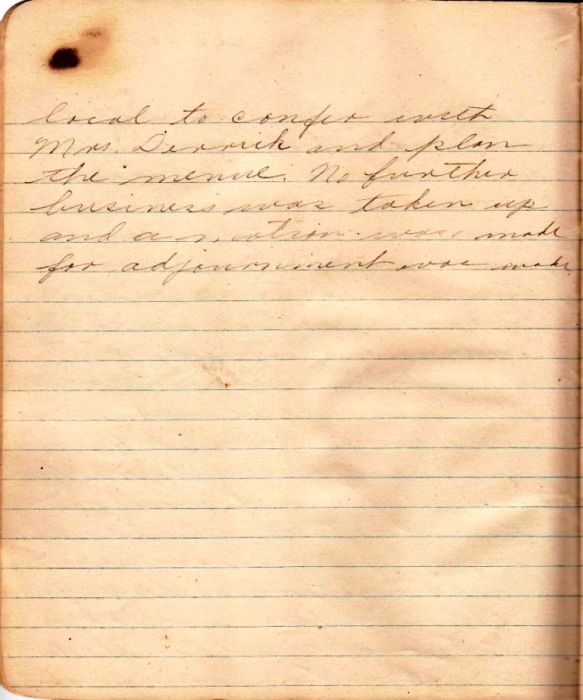 local to confer with
Mrs. Derrick and plan
the menue. No further
business was taken up
and a motion was made
for adjournment was made.